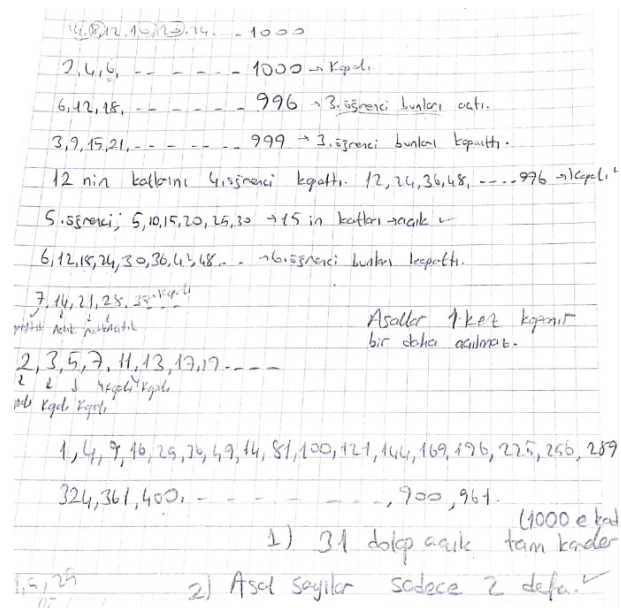 4,8,12,16,20,24....1000
2,4,6, - - - - - - 1000 → Kapalı
6,12,18, - - - - - - 996 → 3. öğrenci bunları açtı.
3,9,15,21, - - - - - - 999 → 3. öğrenci bunları kapattı.
12 nin katlarını 4. öğrenci kapattı. 12,24,36,48, ....996 → Kapalı
5. öğrenci; 5,10,15,20,25,30 → 15 in katları → açık ✓
6,12,18,24,30,36,42,48... → 6. öğrenci bunları kapattı.
7,14,21,28,35 Kapalı
Açık
Asallar 1 kez kapanır
bir daha açılmaz.
2,3,5,7,11,13,17,19 - - - -
Kapalı Kapalı Kapalı Kapalı
1,4,9,16,25,36,49,14,81,100,121,144,169,196,225,256,289
324,361,400, - - - - - - - -, 900, 961.
(1000 e kad
1) 31 dolap açık tam kareler
1,5,25
2) Asal sayılar sadece 2 defa. ✓